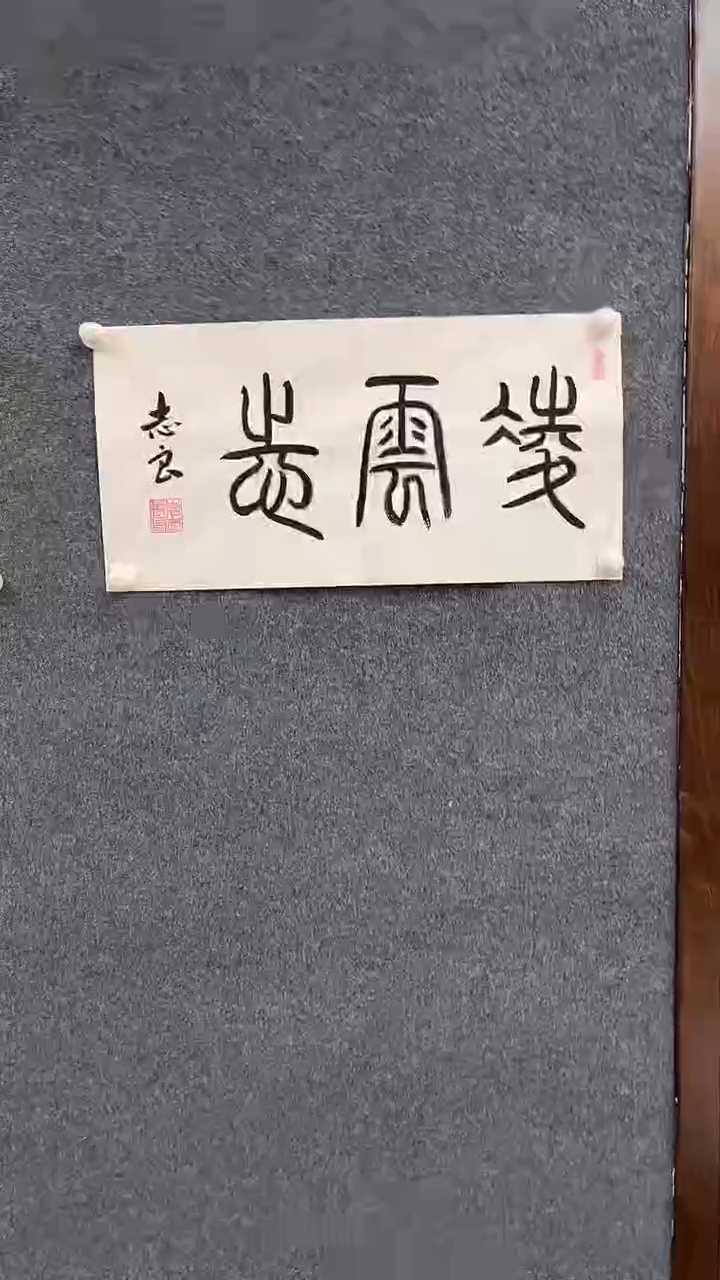 凌雲志
志良